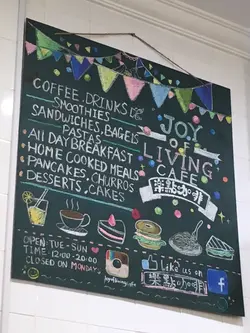 COFFEE, DRINKS
SMOOTHIES
SANDWICHES, BAGELS
PASTAS
All DAY BREAKFAST
HOME COOKED MEALS
PANCAKES, CHURROS
DESSERTS, CAKES
JOY
OF
LIVING
CAFE
樂點咖啡
OPEN: TUE-SUN
TIME: 12:00-20:00
CLOSED ON MONDAY
Instagram
joyoflivingcafe
Like us on
樂點咖啡
f